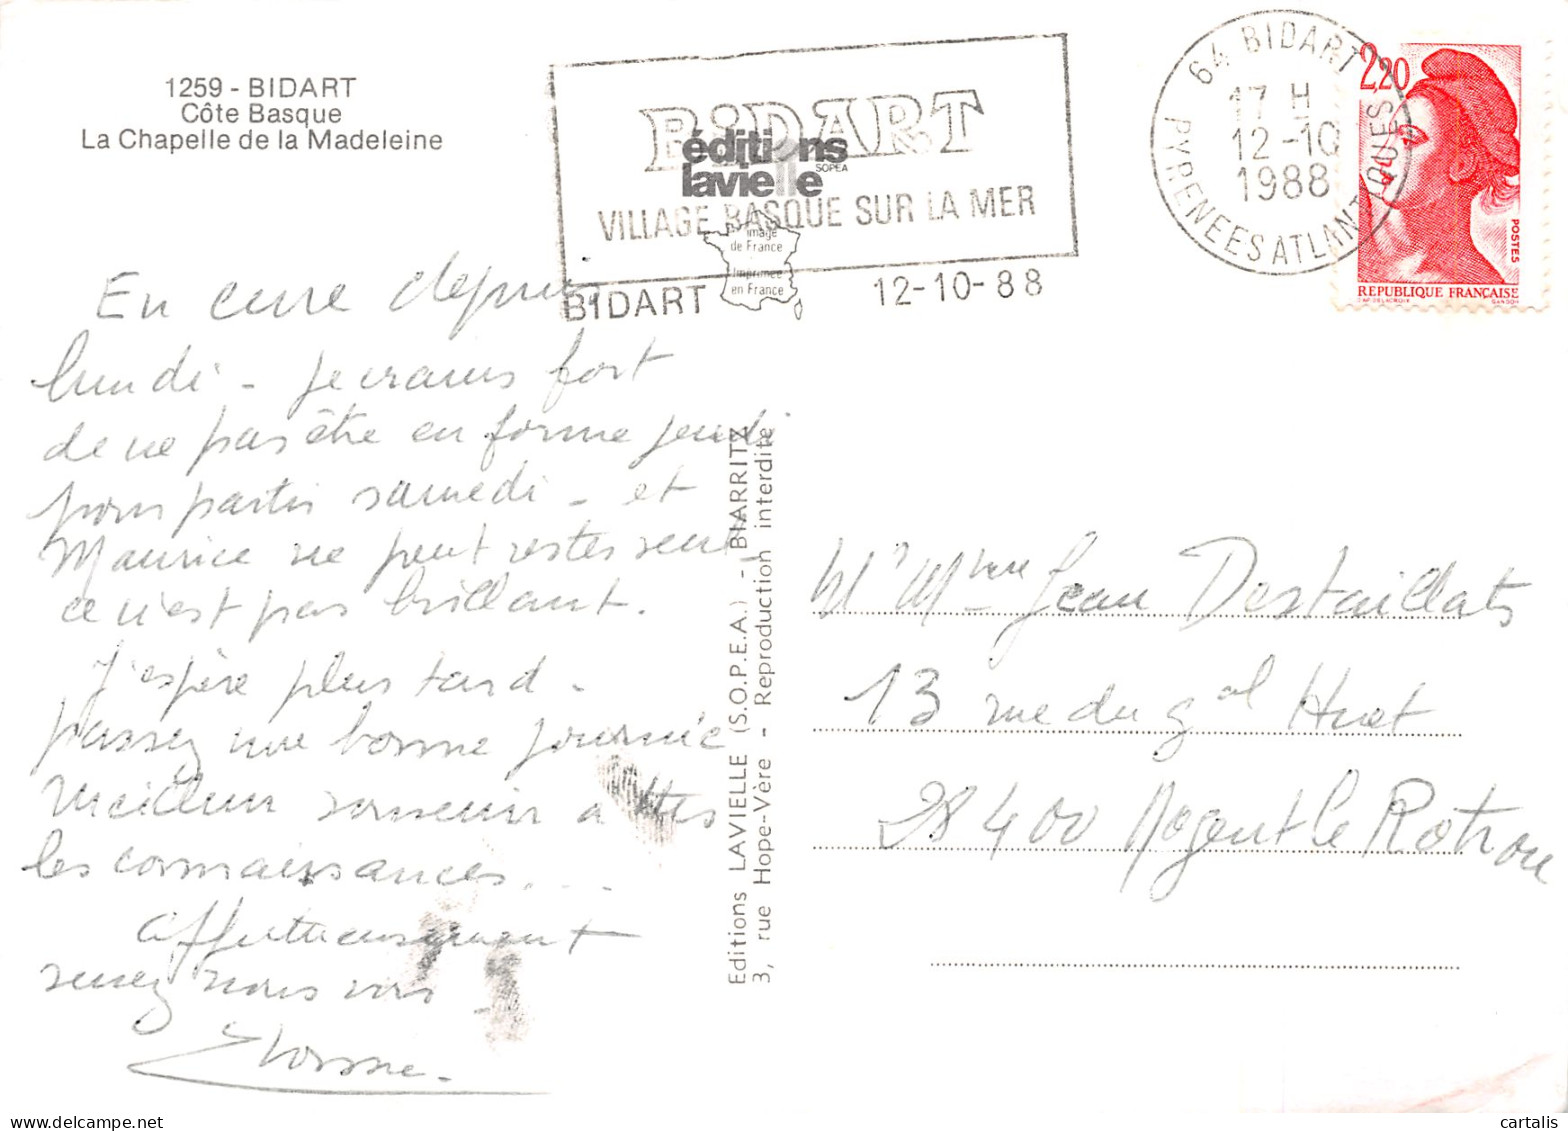 1259 - BIDART
Côte Basque
La Chapelle de la Madeleine
BIDART
éditions
lavielle
SOPEA
VILLAGE BASQUE SUR LA MER
image
de France
Imprimée
en France
BIDART 12-10-88
64 BIDART
17 H
12-10
1988
PYRENEES ATLANTIQUES
2,20
POSTES
REPUBLIQUE FRANÇAISE
D'AP. DELACROIX GANDON
En cure depuis
lundi - Je crains fort
de ne pas être en forme jeudi
pour partir samedi - et
Maurice ne peut rester seul
ce n'est pas brillant.
J'espère plus tard -
passez une bonne journée
Meilleur souvenir à ttes
les connaissances...
affectueusement
venez nous voir
Editions LAVIELLE (S.O.P.E.A.) - BIARRITZ
3, rue Hope-Vère - Reproduction interdite
Mr Mme Jean Destaillats
13 rue du gal Huet
28400 Nogent le Rotrou
delcampe.net
cartalis